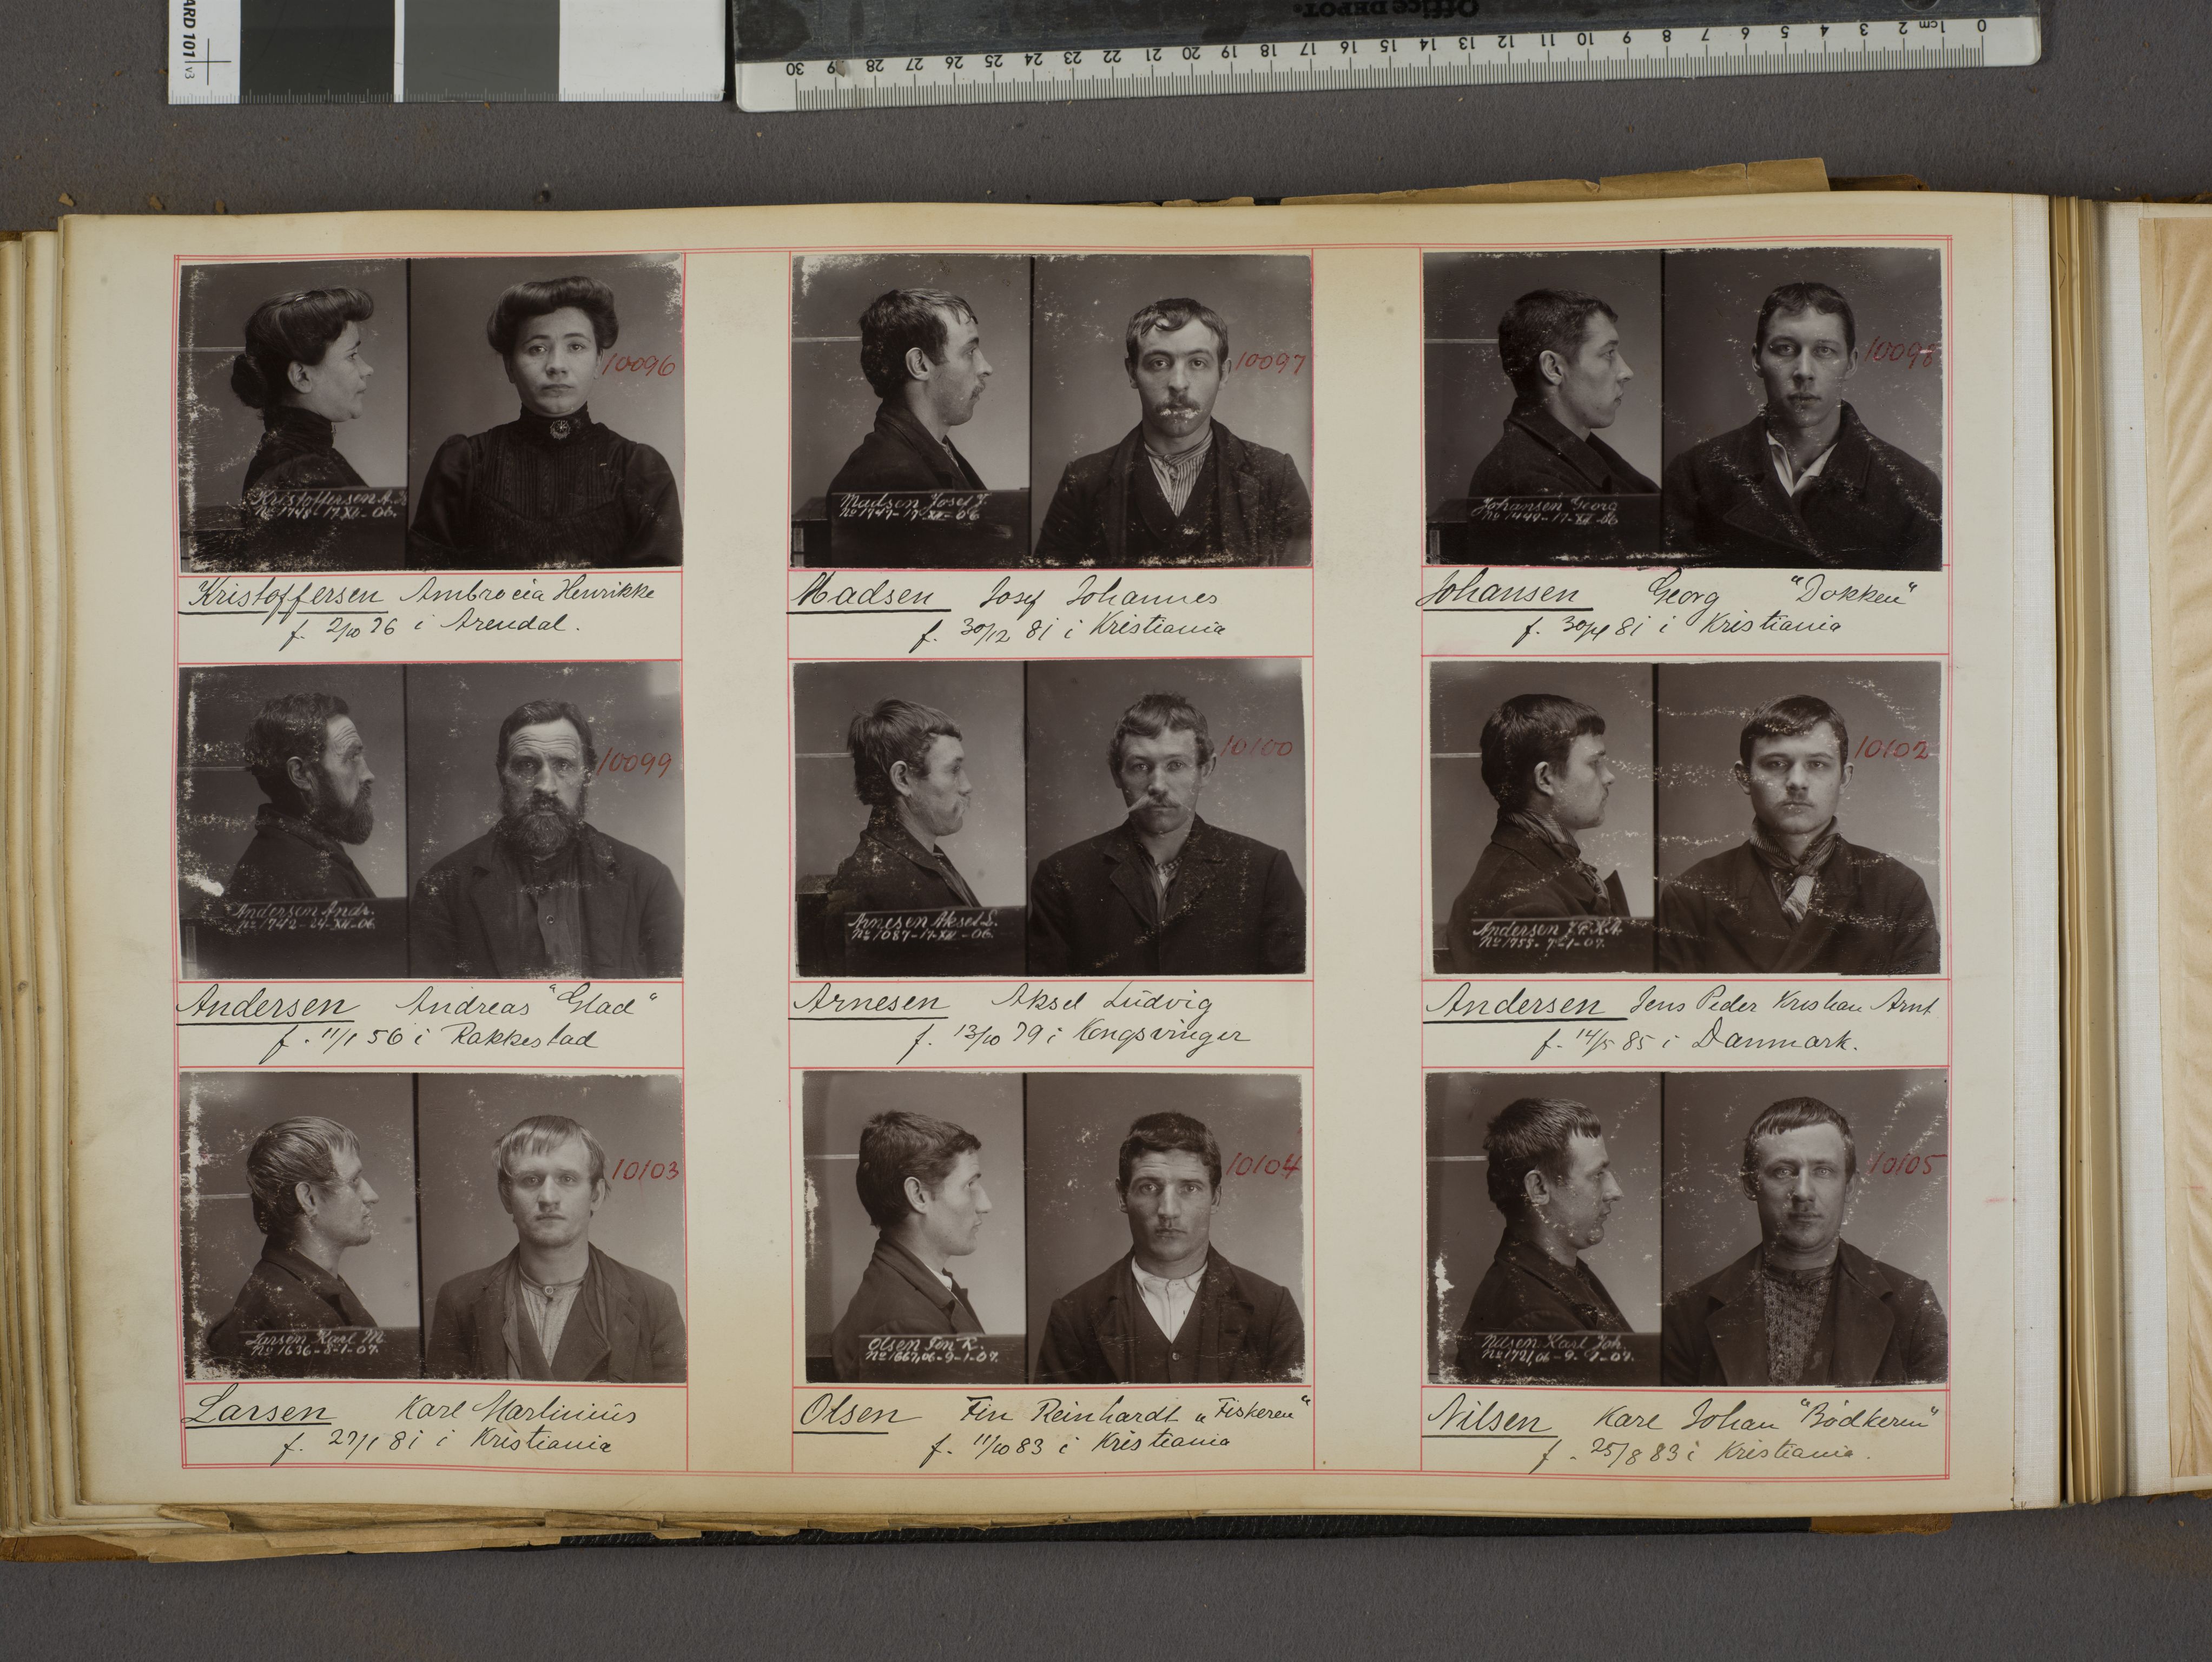 ARD 101 v3
Office DEPOT
0 1cm 2 3 4 5 6 7 8 9 10 11 12 13 14 15 16 17 18 19 20 21 22 23 24 25 26 27 28 29 30
10096
Kristoffersen A.
No 1748-17-XII-06.
Kristoffersen Ambrocia Henrikke
f. 2/10 76 i Arendal.
10097
Madsen Josef J.
No 1747-17-XII-06
Madsen Josef Johannes
f. 30/12 81 i Kristiania
10098
Johansen Georg
No 1449-17-XII-06
Johansen Georg "Dokken"
f. 30/4 81 i Kristiania
10099
Andersen Andr.
No 1742-24-XII-06
Andersen Andreas "Glad"
f. 11/1 56 i Rakkestad
10100
Arnesen Aksel L.
No 1087-17-XII-06
Arnesen Aksel Ludvig
f. 13/10 79 i Kongsvinger
10102
Andersen J.P.K.A.
No 1755-7-1-07.
Andersen Jens Peder Kristian Arnt
f. 14/5 85 i Danmark.
10103
Larsen Karl M.
No 1636-8-1-07.
Larsen Karl Martinius
f. 27/1 81 i Kristiania
10104
Olsen Fin R.
No 1667,06-9-1-07.
Olsen Fin Reinhardt "Fiskeren"
f. 11/10 83 i Kristiania
10105
Nilsen Karl Joh.
No 1721,06-9-1-07.
Nilsen Karl Johan "Bödkeren"
f. 25/8 83 i Kristiania.